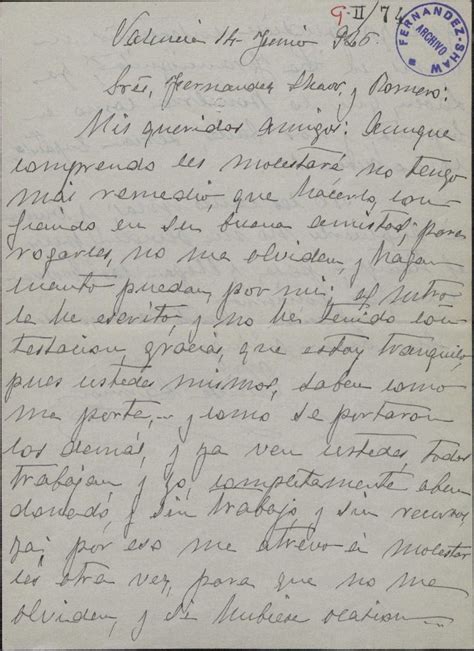 G-II/74
FERNANDEZ-SHAW
ARCHIVO
Valencia 14 Junio 945
Sres, Fernandez Shaw, y Romero:
Mis queridos amigos: Aunque
comprendo les molestaré, no tengo
mas remedio, que hacerlo, con-
fiando en su buena amistad, para
rogarles, no me olviden, y hagan
cuanto puedan, por mi; el
le he escrito, y no he tenido con
testacion, gracias, que estoy tranquilo,
pues ustedes mismos, saben como
me porté,... y como se portaron
los demás, y ya ven ustedes, todos
trabajan, y yó, completamente aban
donado, y sin trabajo, y sin recursos
ya; por eso me atrevo á molestar
les otra vez, para que no me
olviden, y si hubiese ocasion....